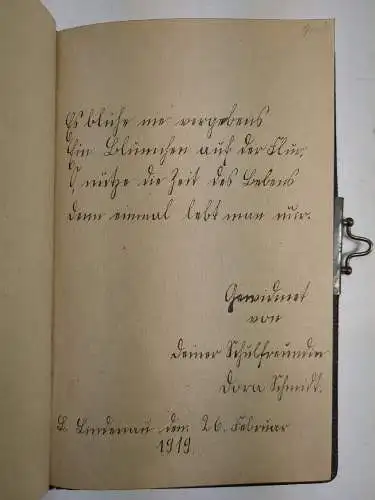 Es blühe nie vergebens
Ein Blümchen auf der Flur,
O nütze die Zeit des Lebens
denn einmal lebt man nur.
Gewidmet
von
deiner Schulfreundin
Dora Schmidt.
L. Lindenau den 26. Februar
1919